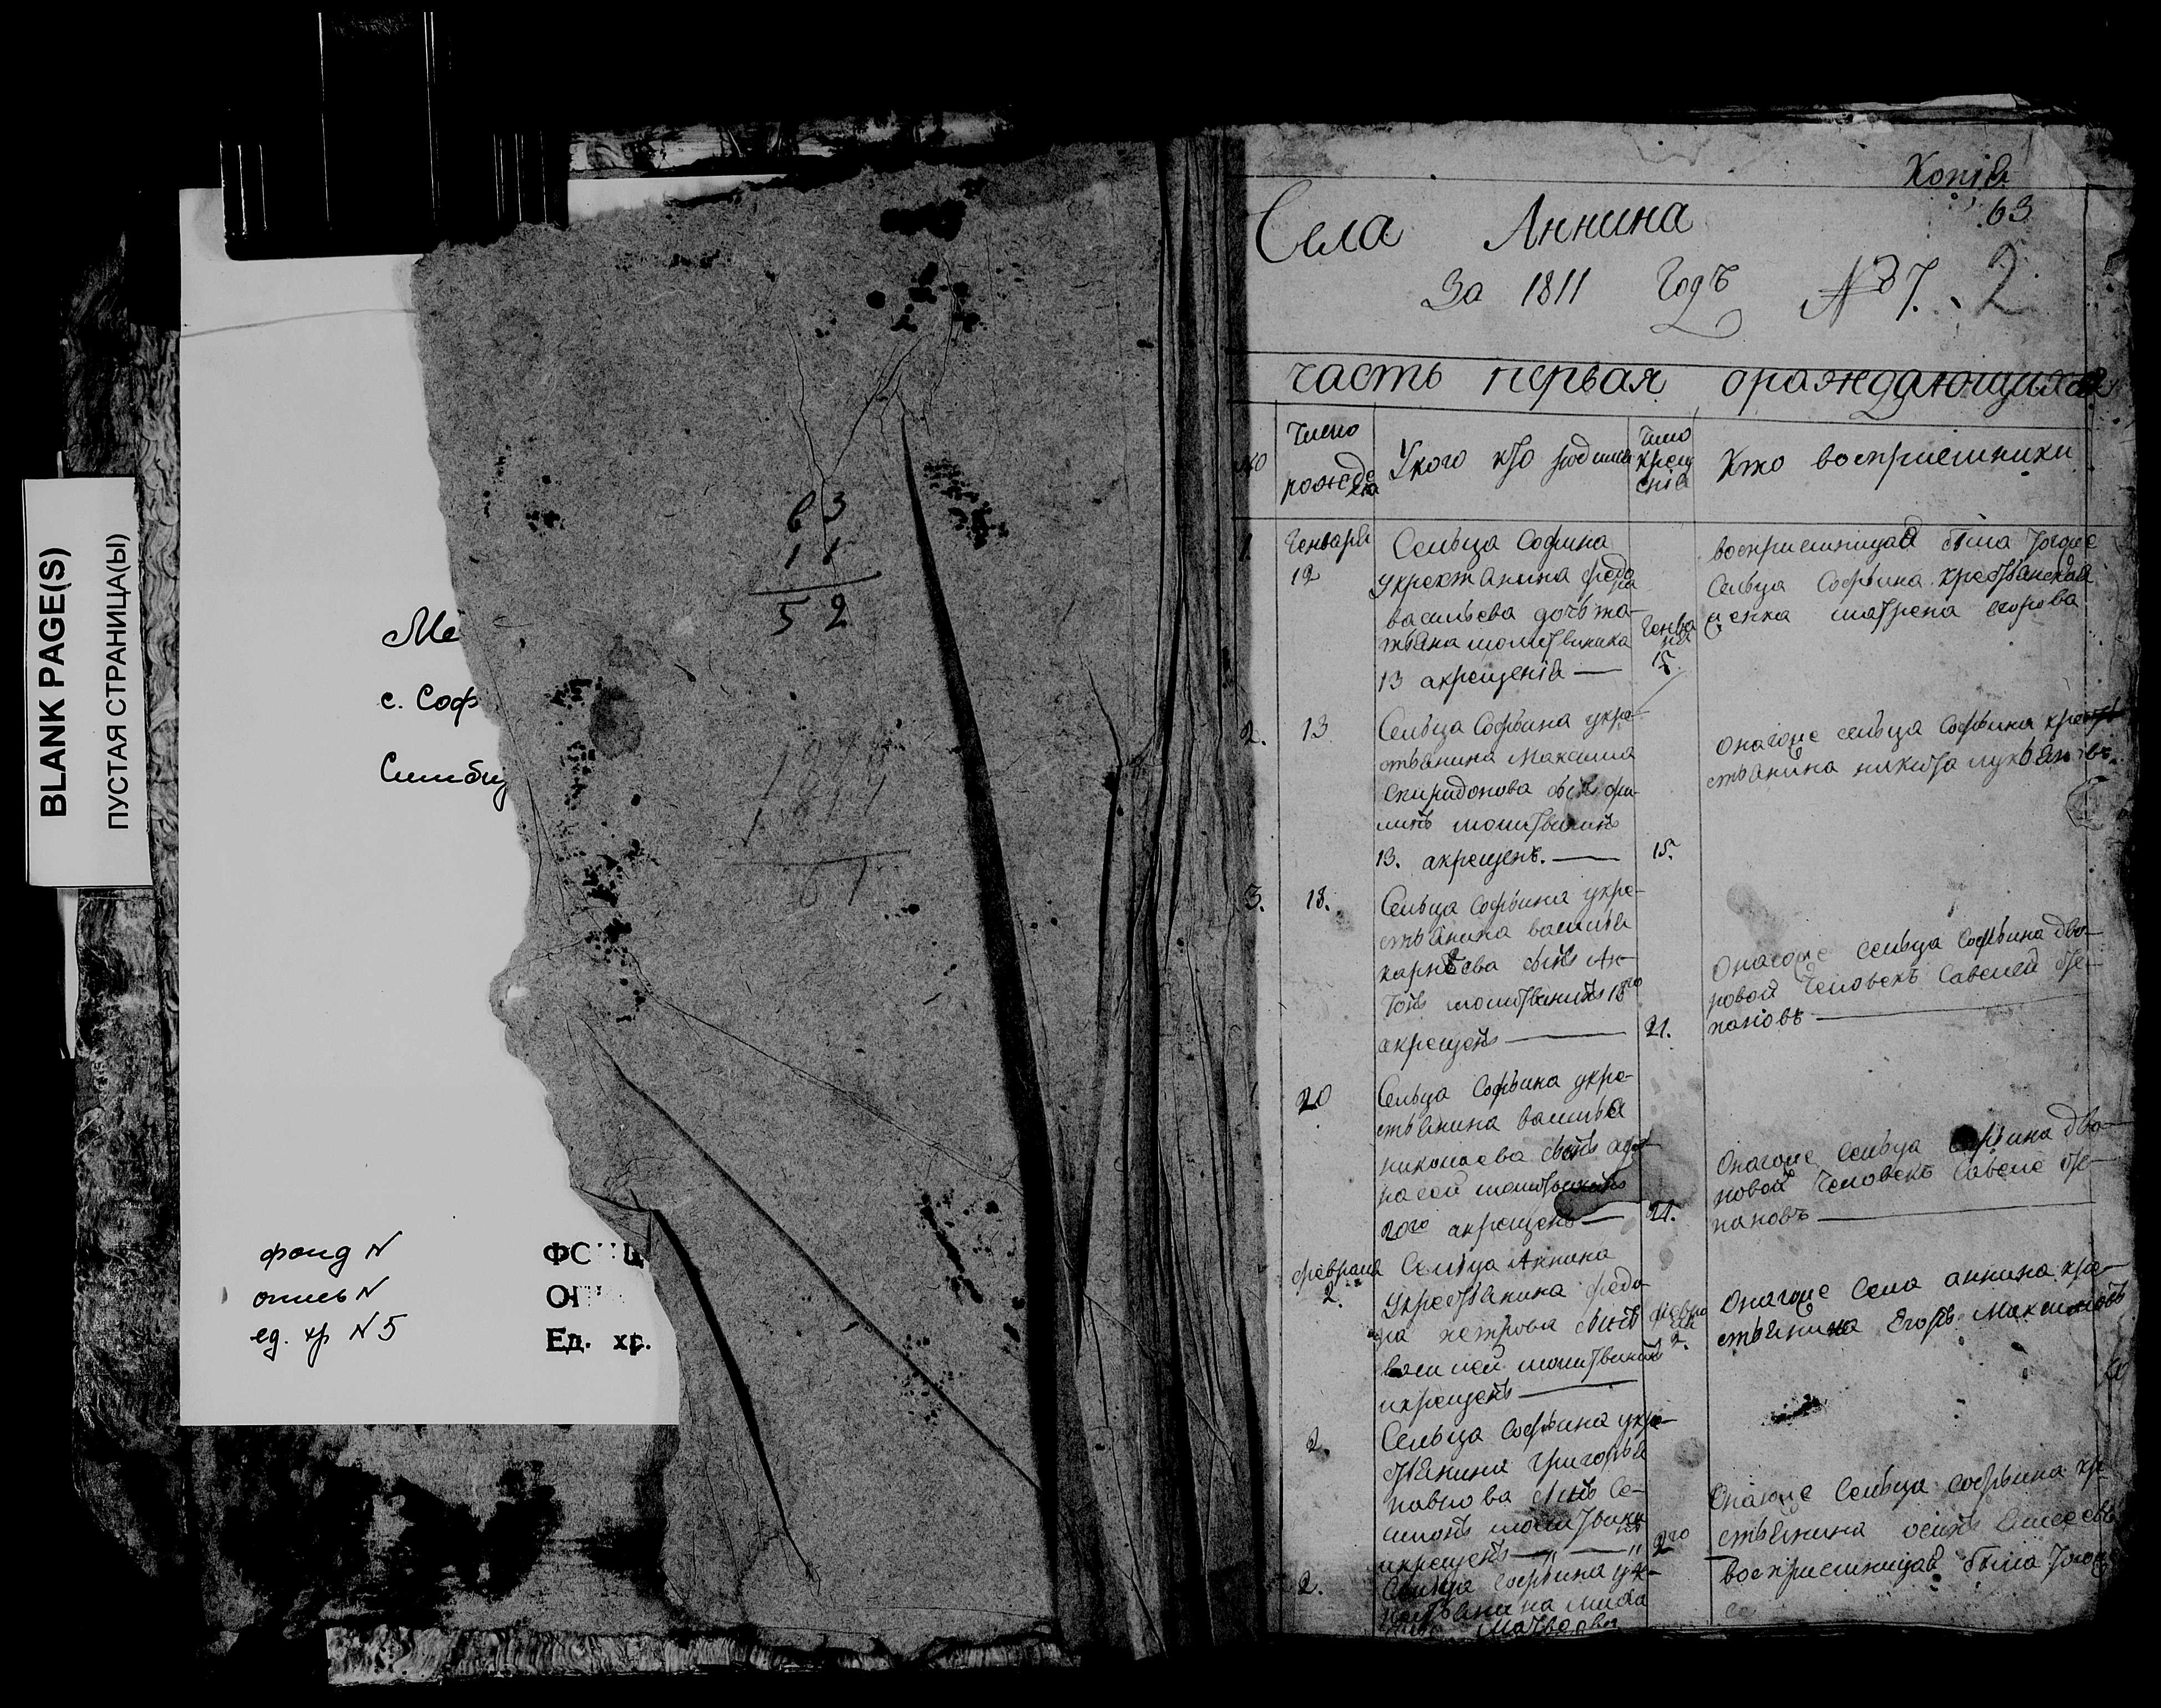 BLANK PAGE(S)
ПУСТАЯ СТРАНИЦА(Ы)
Ме
с. Соф
Симбир
фонд N
опись N
ед. хр N 5
Ед. хр.
63
11
52
Копiя
63
Села Аннина
За 1811 Годъ № 7. 2
часть первая ораждающихся
Число
рожде
нiя
У кого кто родился
Число
крещ
енiя
Кто восприемники
1 Генваря
12
Сельца Софьина
укрестьянина федо
ра
васильева дочь та-
тьяна молитвинна
13 акрещенiя —
Генва
ря
15
восприемницая была тогоже
Сельца Софьина крестьянская
женка матрена егорова
2. 13
Сельца Софьина укре-
стьянина максима
спиридонова сынъ фи-
липъ молитвинъ
13. акрещенъ. — 15.
Онагоже сельца Софьина кре
стьянина никита лукьяновъ.
3. 18.
Сельца Софьина укре-
стьянина василья
карнѣева сынъ Ан-
тонъ молитвинъ 18го
акрещенъ — 21.
Онагоже сельца Софьина дво-
ровой человекъ Савелей сте-
пановъ —
20
Сельца Софьина укре-
стьянина василья
николаева сынъ афо-
насей молитвинъ
20го акрещенъ — 21.
Онагоже сельца Софьина дво-
ровой человекъ Савеле сте-
пановъ —
февраля
2.
Сельца Аннина
укрестьянина федо
ра петрова сынъ
василей молитвинъ
икрещенъ —
февра
ля
2.
Онагоже Села аннина кре-
стьянина Егоръ Максимовъ
2.
Сельца Софьина укре-
стьянина Григорья
павлова сынъ Се-
мионъ молитвинъ
икрещенъ — 2го
Онагоже Сельца софьина кр
стьянина осипъ
2.
Сельца Софьина укре-
стьянина
Матвеева
восприемницая была того